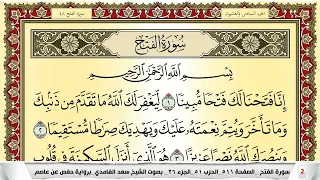 الجزء السادس والعشرون
سورة الفتح ٤٨
سُورَةُ الفَتْحِ
بِسْمِ اللَّهِ الرَّحْمَٰنِ الرَّحِيمِ
إِنَّا فَتَحْنَا لَكَ فَتْحًا مُّبِينًا ١ لِّيَغْفِرَ لَكَ اللَّهُ مَا تَقَدَّمَ مِن ذَنبِكَ
وَمَا تَأَخَّرَ وَيُتِمَّ نِعْمَتَهُۥ عَلَيْكَ وَيَهْدِيَكَ صِرَٰطًا مُّسْتَقِيمًا ٢
وَيَنصُرَكَ اللَّهُ نَصْرًا عَزِيزًا ٣ هُوَ الَّذِىٓ أَنزَلَ السَّكِينَةَ فِى قُلُوبِ
2 سورة الفتح الصفحة ٥١١ الحزب ٥١ الجزء ٢٦ بصوت الشيخ سعد الغامدي برواية حفص عن عاصم